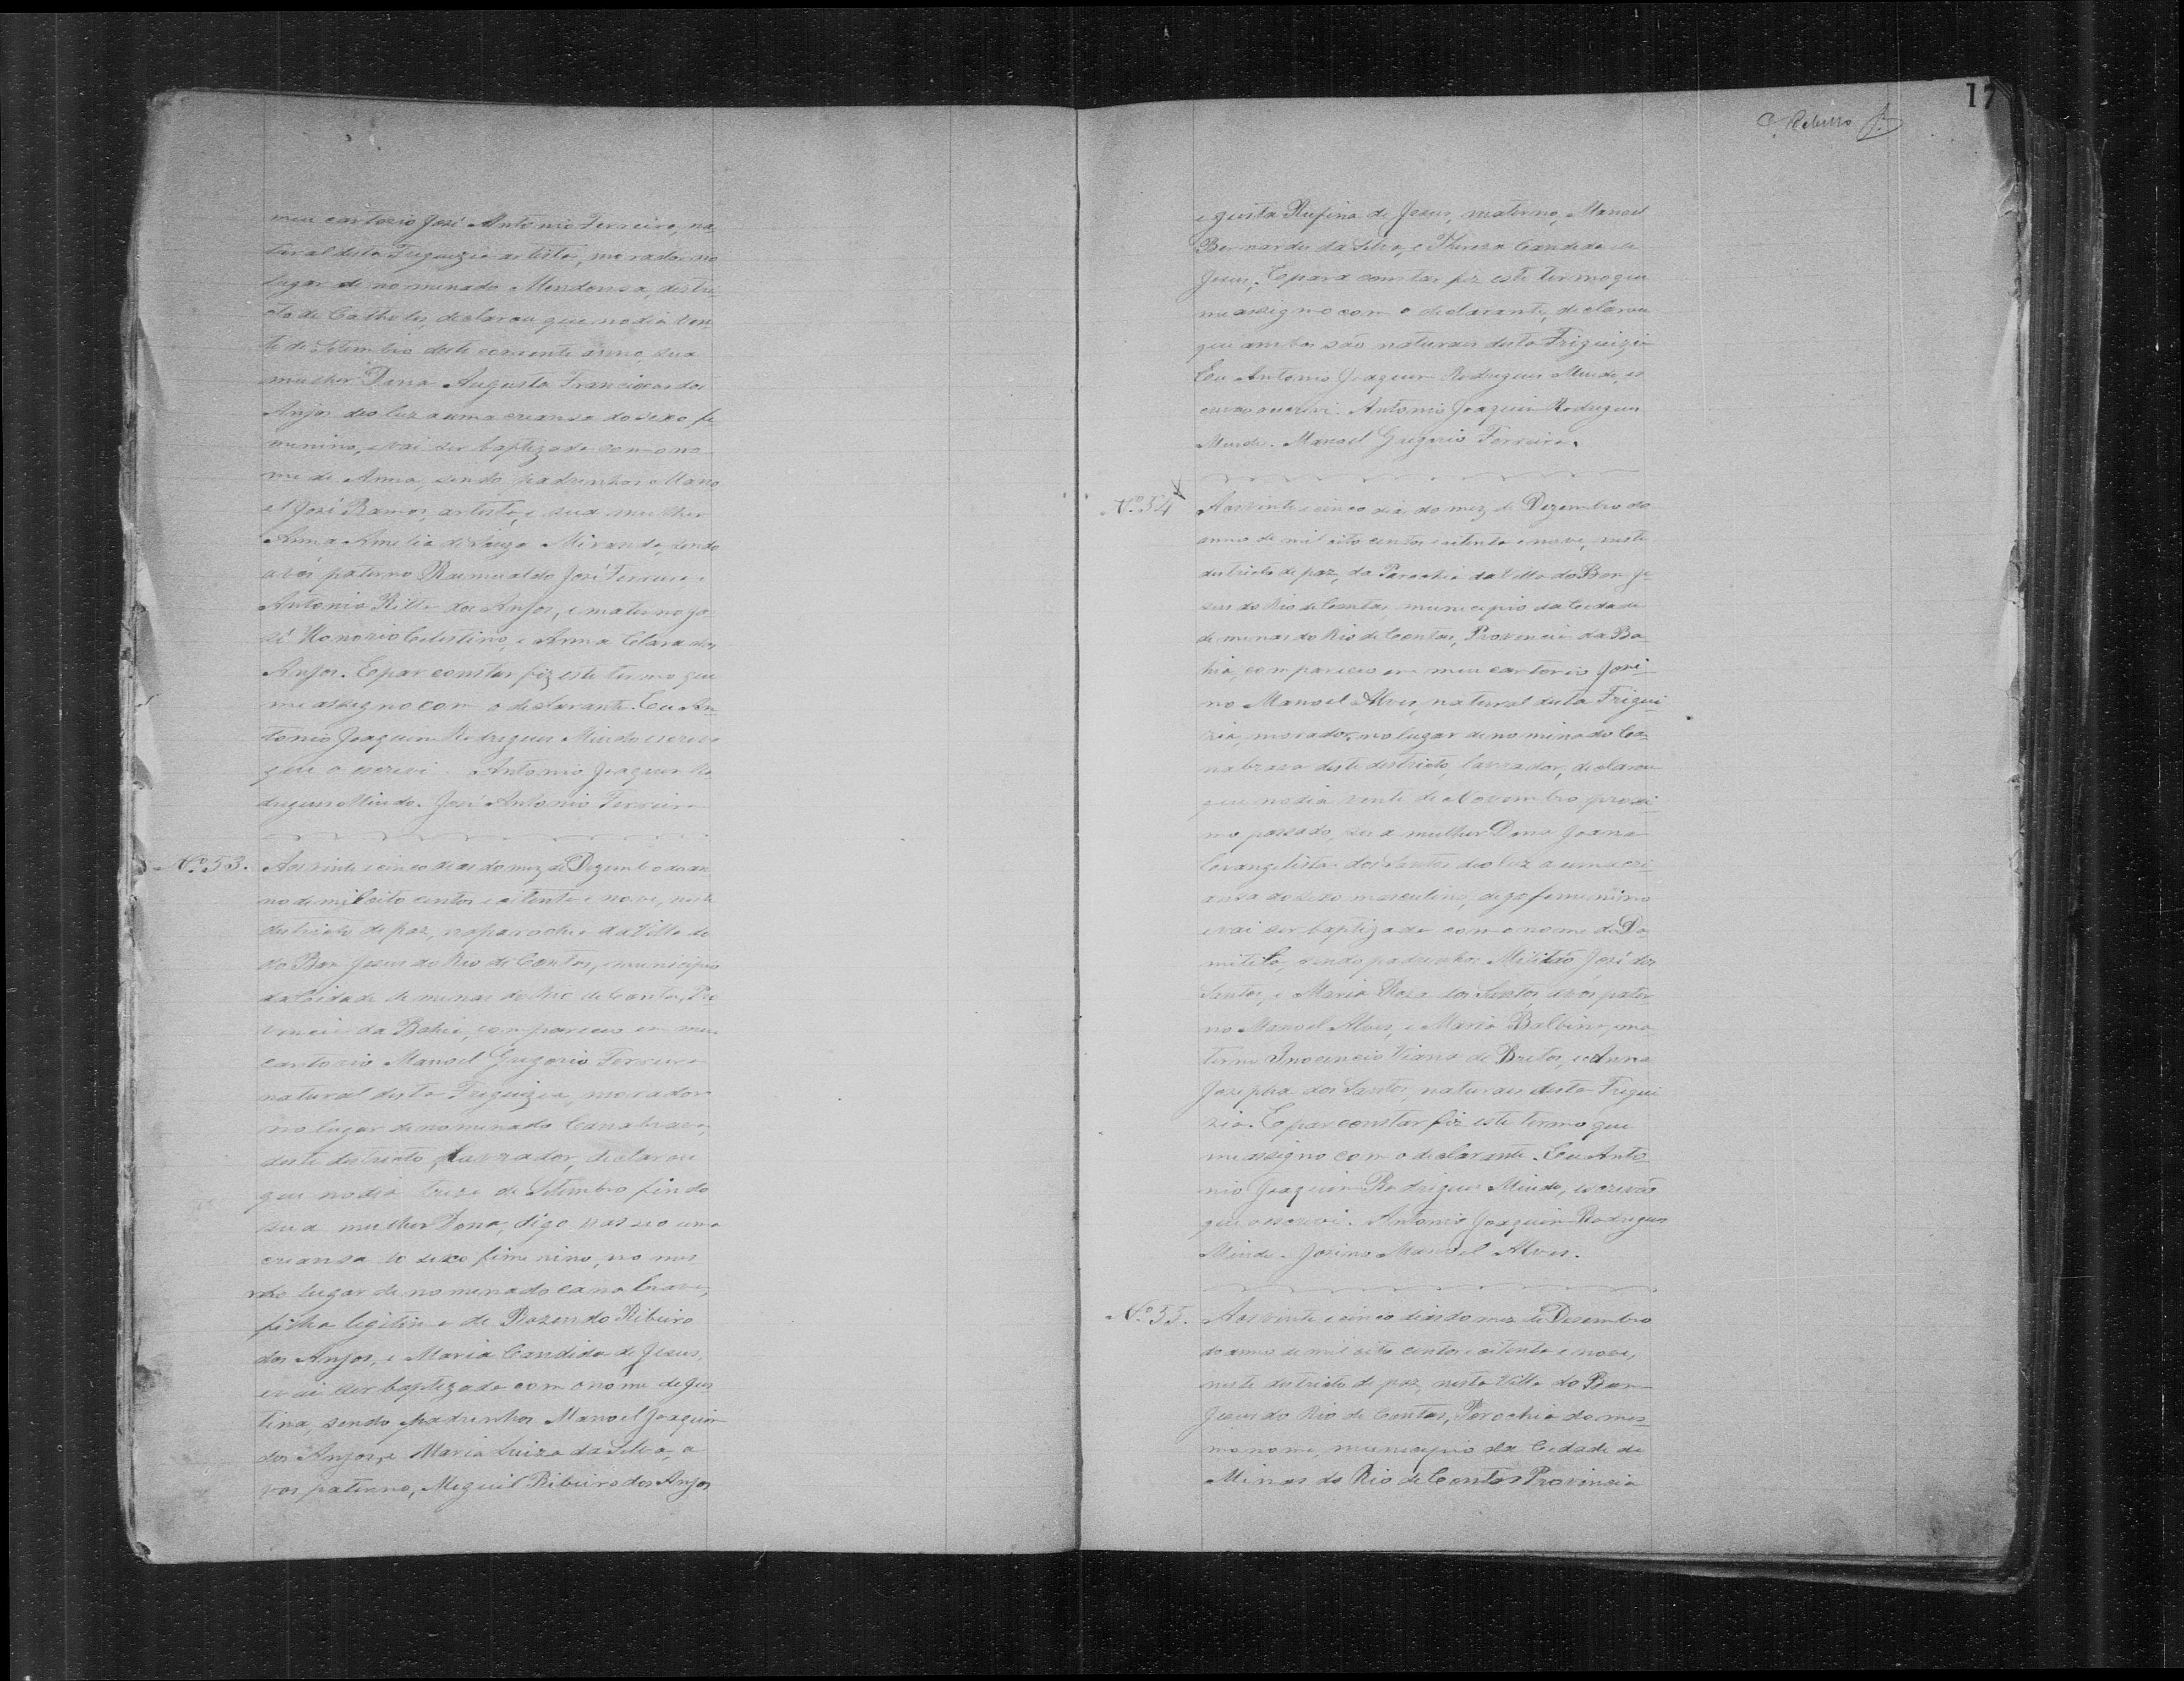 meu cartorio José Antonio Ferreira, na
tural desta Freguizia artista, morador no
lugar de nominado Mendonsa, destri
cto de Catholes, declarou que no dia vin
te de Setembro deste corrente anno, sua
mulher Dona Augusta Francisca dos
Anjos deo luz a uma creansa do sexo fe
minino, e vai ser baptizada com o no
me de Anna, sendo padrinhos Mano
el José Ramos, artista, e sua mulher
Anna Amelia de Souza Miranda, sendo
avós paterno Raimualdo José Ferreira e
Antonia Ritta dos Anjos, e materno Jo
sé Honorio Celestino, e Anna Clara dos
Anjos. E par constar fiz este termo que
me assigno com o declarante. Eu An
tonio Joaquim Rodrigues Mindo escrivão
que o escrevi. Antonio Joaquim Ro
drigues Mindo. José Antonio Ferreira
Nº 53. Aos vinte e cinco dias do mez de Dezembro do an
no de mil oito centos e oitenta e nove, neste
destricto de paz, na parochia da Villa de
do Bom Jesus do Rio de Contas, municipio
da Cidade de minas do Rio de Contas, Pro
vincia da Bahia, compareceo em meu
cartorio Manoel Gregorio Ferreira
natural desta Freguizia, morador
no lugar denominado Canabrava,
deste destricto, Lavrador, declarou
que no dia treze de Setembro findo
sua mulher Dona, digo, nasceo uma
creansa do sexo feminino, no mes
mo lugar de nominado cana brava,
filha legitima de Rozendo Ribeiro
dos Anjos, e Maria Candida de Jesus,
e vai ser baptizada com o nome de Jus
tina, sendo padrinhos Manoel Joaquim
dos Anjos, e Maria Luiza da Silva, a
vos paterno, Miguil Ribeiro dos Anjos
17
C. Rebello
e Justa Rufina de Jesus, materno, Manoel
Bernardes da Silva, e Thereza Candida de
Jesus. E para constar fiz este termo que
me assigno com o declarante, declarou
que ambos são naturaes desta Friguizia
Eu Antonio Joaquim Rodrigues Mindo, es
crivão o escrevi. Antonio Joaquim Rodrigues
Mindo. Manoel Gregorio Ferreira.
Nº 54 Aos vinte e cinco dias do mez de Dezembro do
anno de mil oito centos e oitenta e nove, neste
destricto de paz, da Parochia da Villa do Bom Je
sus do Rio de Contas, municipio da Cidade
de minas do Rio de Contas, Provincia da Ba
hia, compareceo em meu cartorio Josi
no Manoel Alves, natural desta Frigui
zia, morador, no lugar denominado Ca
nabrava deste destricto, lavrador, declarou
que no dia vinte de Novembro proxi
mo passado, sua mulher Dona Joana
Evangelista dos Santos deo luz a uma cri
ansa do sexo masculino, digo feminino
e vai ser baptizada com o nome de Do
mitila, sendo padrinhos Militão José dos
Santos, e Maria Roza dos Santos, avos pater
no Manoel Alves, e Maria Balbina, ma
terno Inocencio Viana de Britos, e Anna
Josepha dos Santos, naturaes desta Frigui
zia. E par constar fiz este termo que
me assigno com o declarante. Eu Anto
nio Joaquim Rodrigues Mindo, escrivão
que o escrevi. Antonio Joaquim Rodrigues
Mindo. Josino Manoel Alves.
Nº 55. Aos vinte e cinco dias do mez de Desembro
do anno de mil oito centos e oitenta e nove,
neste destricto de paz, nesta Villa do Bom
Jesus do Rio de Contas, Parochia do mes
mo nome, municipio da Cidade de
Minas do Rio de Contas Provincia